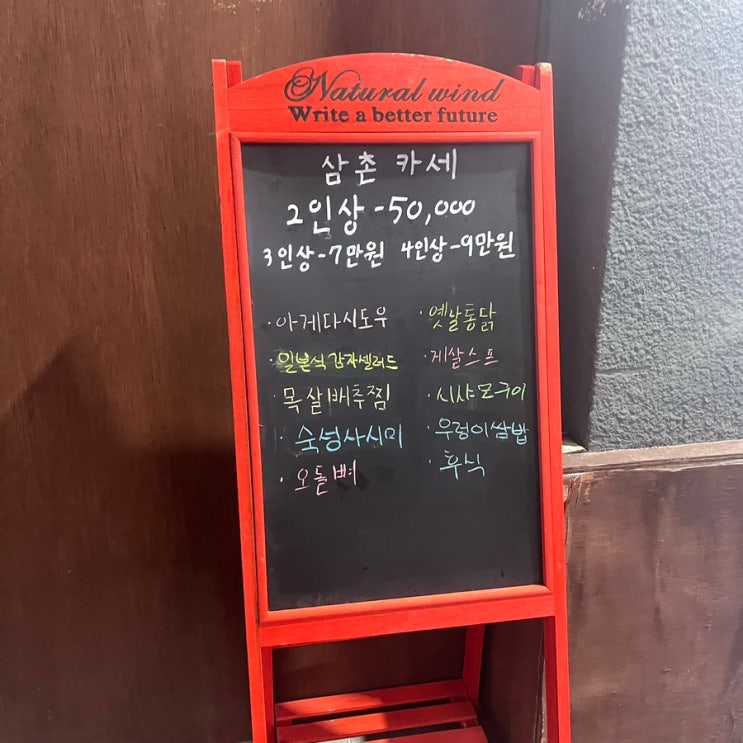 Natural wind
Write a better future
삼촌 카세
2인상-50,000
3인상-7만원 4인상-9만원
·아게다시도우 ·옛날통닭
·일본식감자샐러드 ·게살스프
·목살배추찜 ·시샤모구이
·숙성사시미 ·우렁이쌈밥
·오돌뼈 ·후식